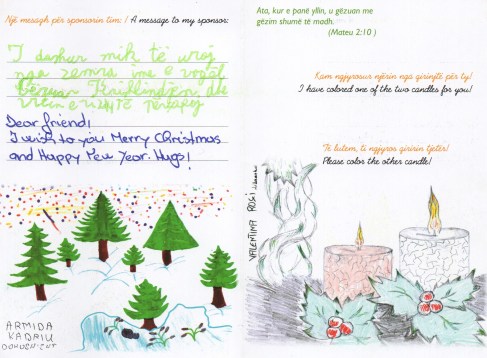 Një mesazh për sponsorin tim: / A message to my sponsor:
I dashur mik të uroj
nga zemra ime e vogël
Gëzuar Krishtlindjen dhe
vitin e ri
Dear friend!
I wish to you Merry Christmas
and Happy New Year. Hugs!
ARMIDA
Ata, kur e panë yllin, u gëzuan me
gëzim shumë të madh.
(Mateu 2:10 )
Kam ngjyrosur njërin nga qirinjtë për ty!
I have colored one of the two candles for you!
Të lutem, ti ngjyros qiririn tjetër!
Please color the other candle!
VALENTINA